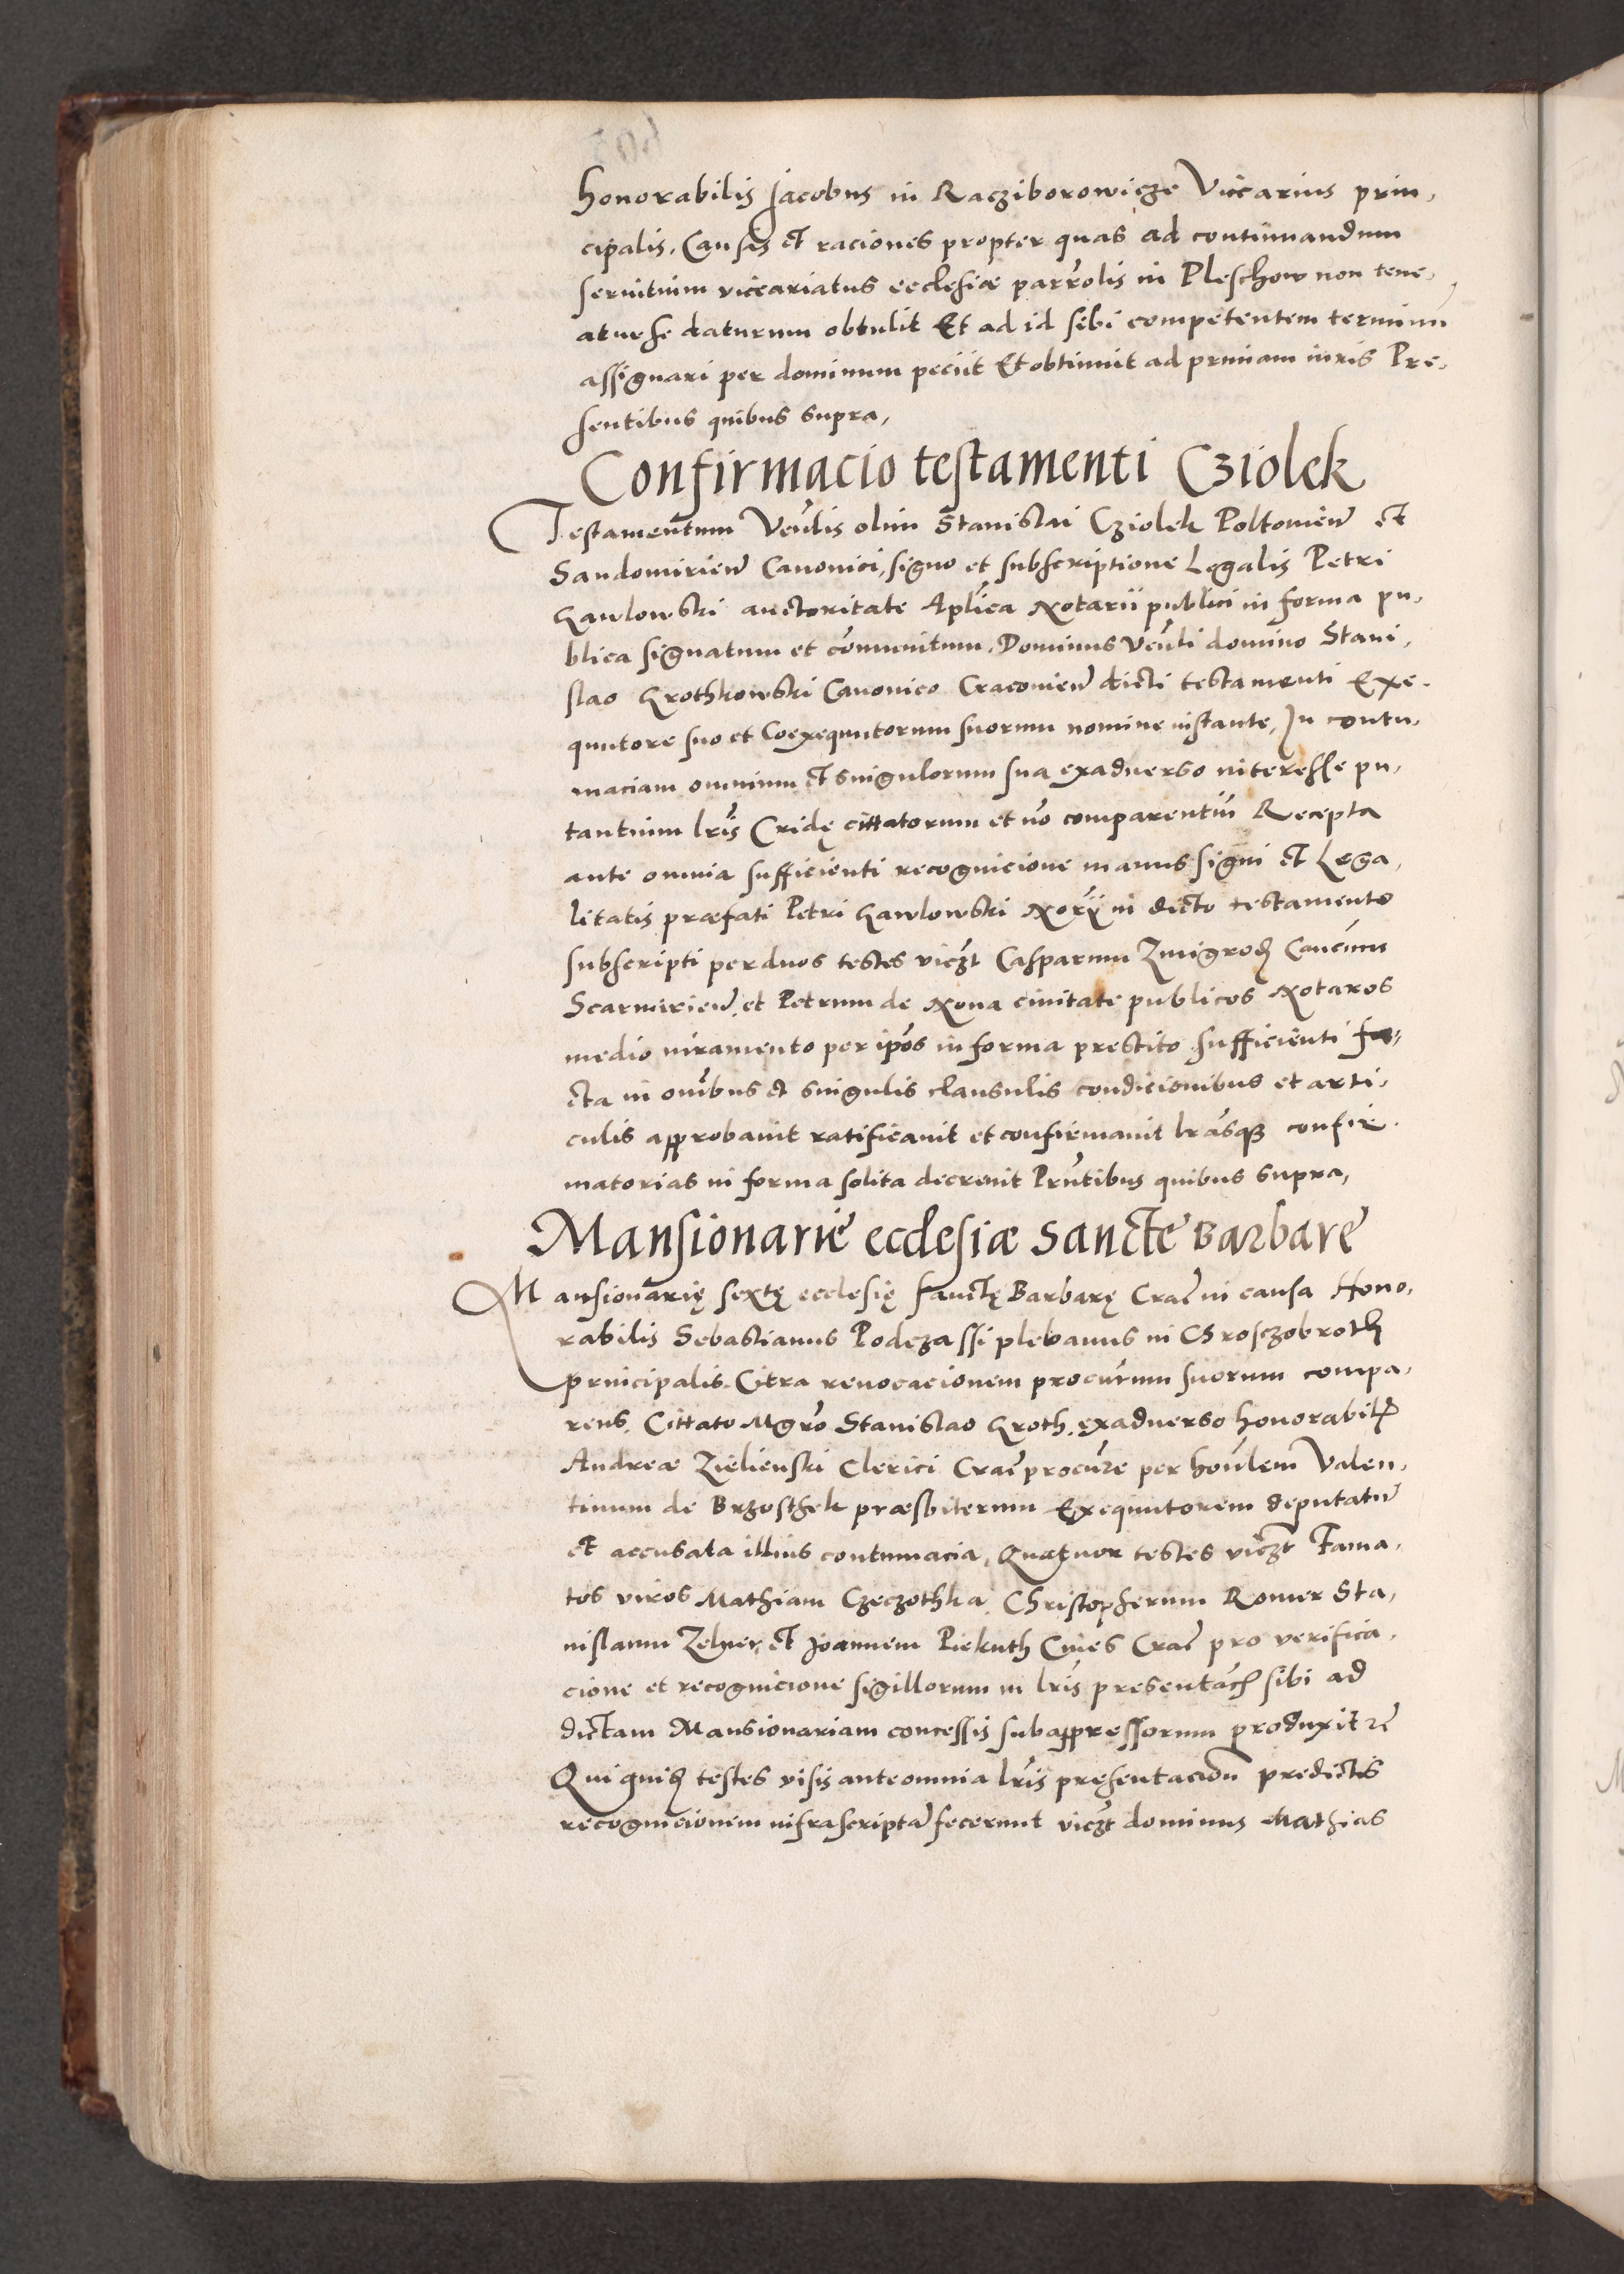 honorabilis Jacobus in Raczyborowicze Viccarius prin,
cipalis. Causas et raciones propter quas ad continuandum
seruitium vicceariatus ecclesiæ parrolis in Pleschow non tene,
atur se daturum obtulit Et ad id sibi competentem terminum
assignari per dominum peciit Et obtinuit ad primam iuris Pre,
sentibus quibus supra,
Confirmacio testamenti Cziolek
Testamentum Venlis olim Stanislai Cziolek Poltouien et
Sandomirien Canonici, signo et subscriptione Legalis Petri
Gawlowski auctoritate Aplica Notarii publici in forma pu,
blica signatum et communitum. Dominus Venli domino Stani,
slao Grothkowski Canonico Cracouien dicti testamenti Exe,
quutore suo et Coexequutorum suorum nomine instante, In contu,
maciam omnium et singulorum sua exaduerso interesse pu,
tantium lris Cridę cittatorum et no comparentiu Recepta
ante omnia sufficienti recognicione manus signi et Lega,
litatis præfati Petri Gawlowski Norii in dicto testamento
subscripti per duos testes viczt Casparum Zmigrod Canucum
Scarmirien, et Petrum de Noua ciuitate publicos Notaros
medio iuramento per ipos in forma prestito sufficienti fa,
cta in omibus et singulis clausulis condicionibus et arti,
culis approbauit ratificauit et confirmauit lrasque confir,
matorias in forma solita decreuit Prntibus quibus supra,
Mansionarie ecclesiæ Sancte Barbare
Mansionarię sextę ecclesię sanctę Barbarę Crac in causa Hono,
rabilis Sebastianus Podczassi plebanus in Chrosczobroth
principalis. Citra reuocacionem procurum suorum compa,
rens. Cittato Mgro Stanislao Groth, exaduerso honorabil
Andreæ Zielienski Clerici Crac procure per honlem Valen,
tinum de Brzosthek præsbiterum Exequutorem deputatu
et accusata illius contumacia, Quatuor testes viczt Fama,
tos viros Mathiam Czeczothka, Christopherum Romer Sta,
nislaum Zelner, et Joannem Piekuth Ciues Crac pro verifica,
cione et recognicione sigillorum in lris presentach sibi ad
dictam Mansionariam concessis subappressorum produxit rc
Qui quid testes visis ante omnia lris presentacion predictis
recognicionem infrascripta fecerunt viczt dominus Mathias